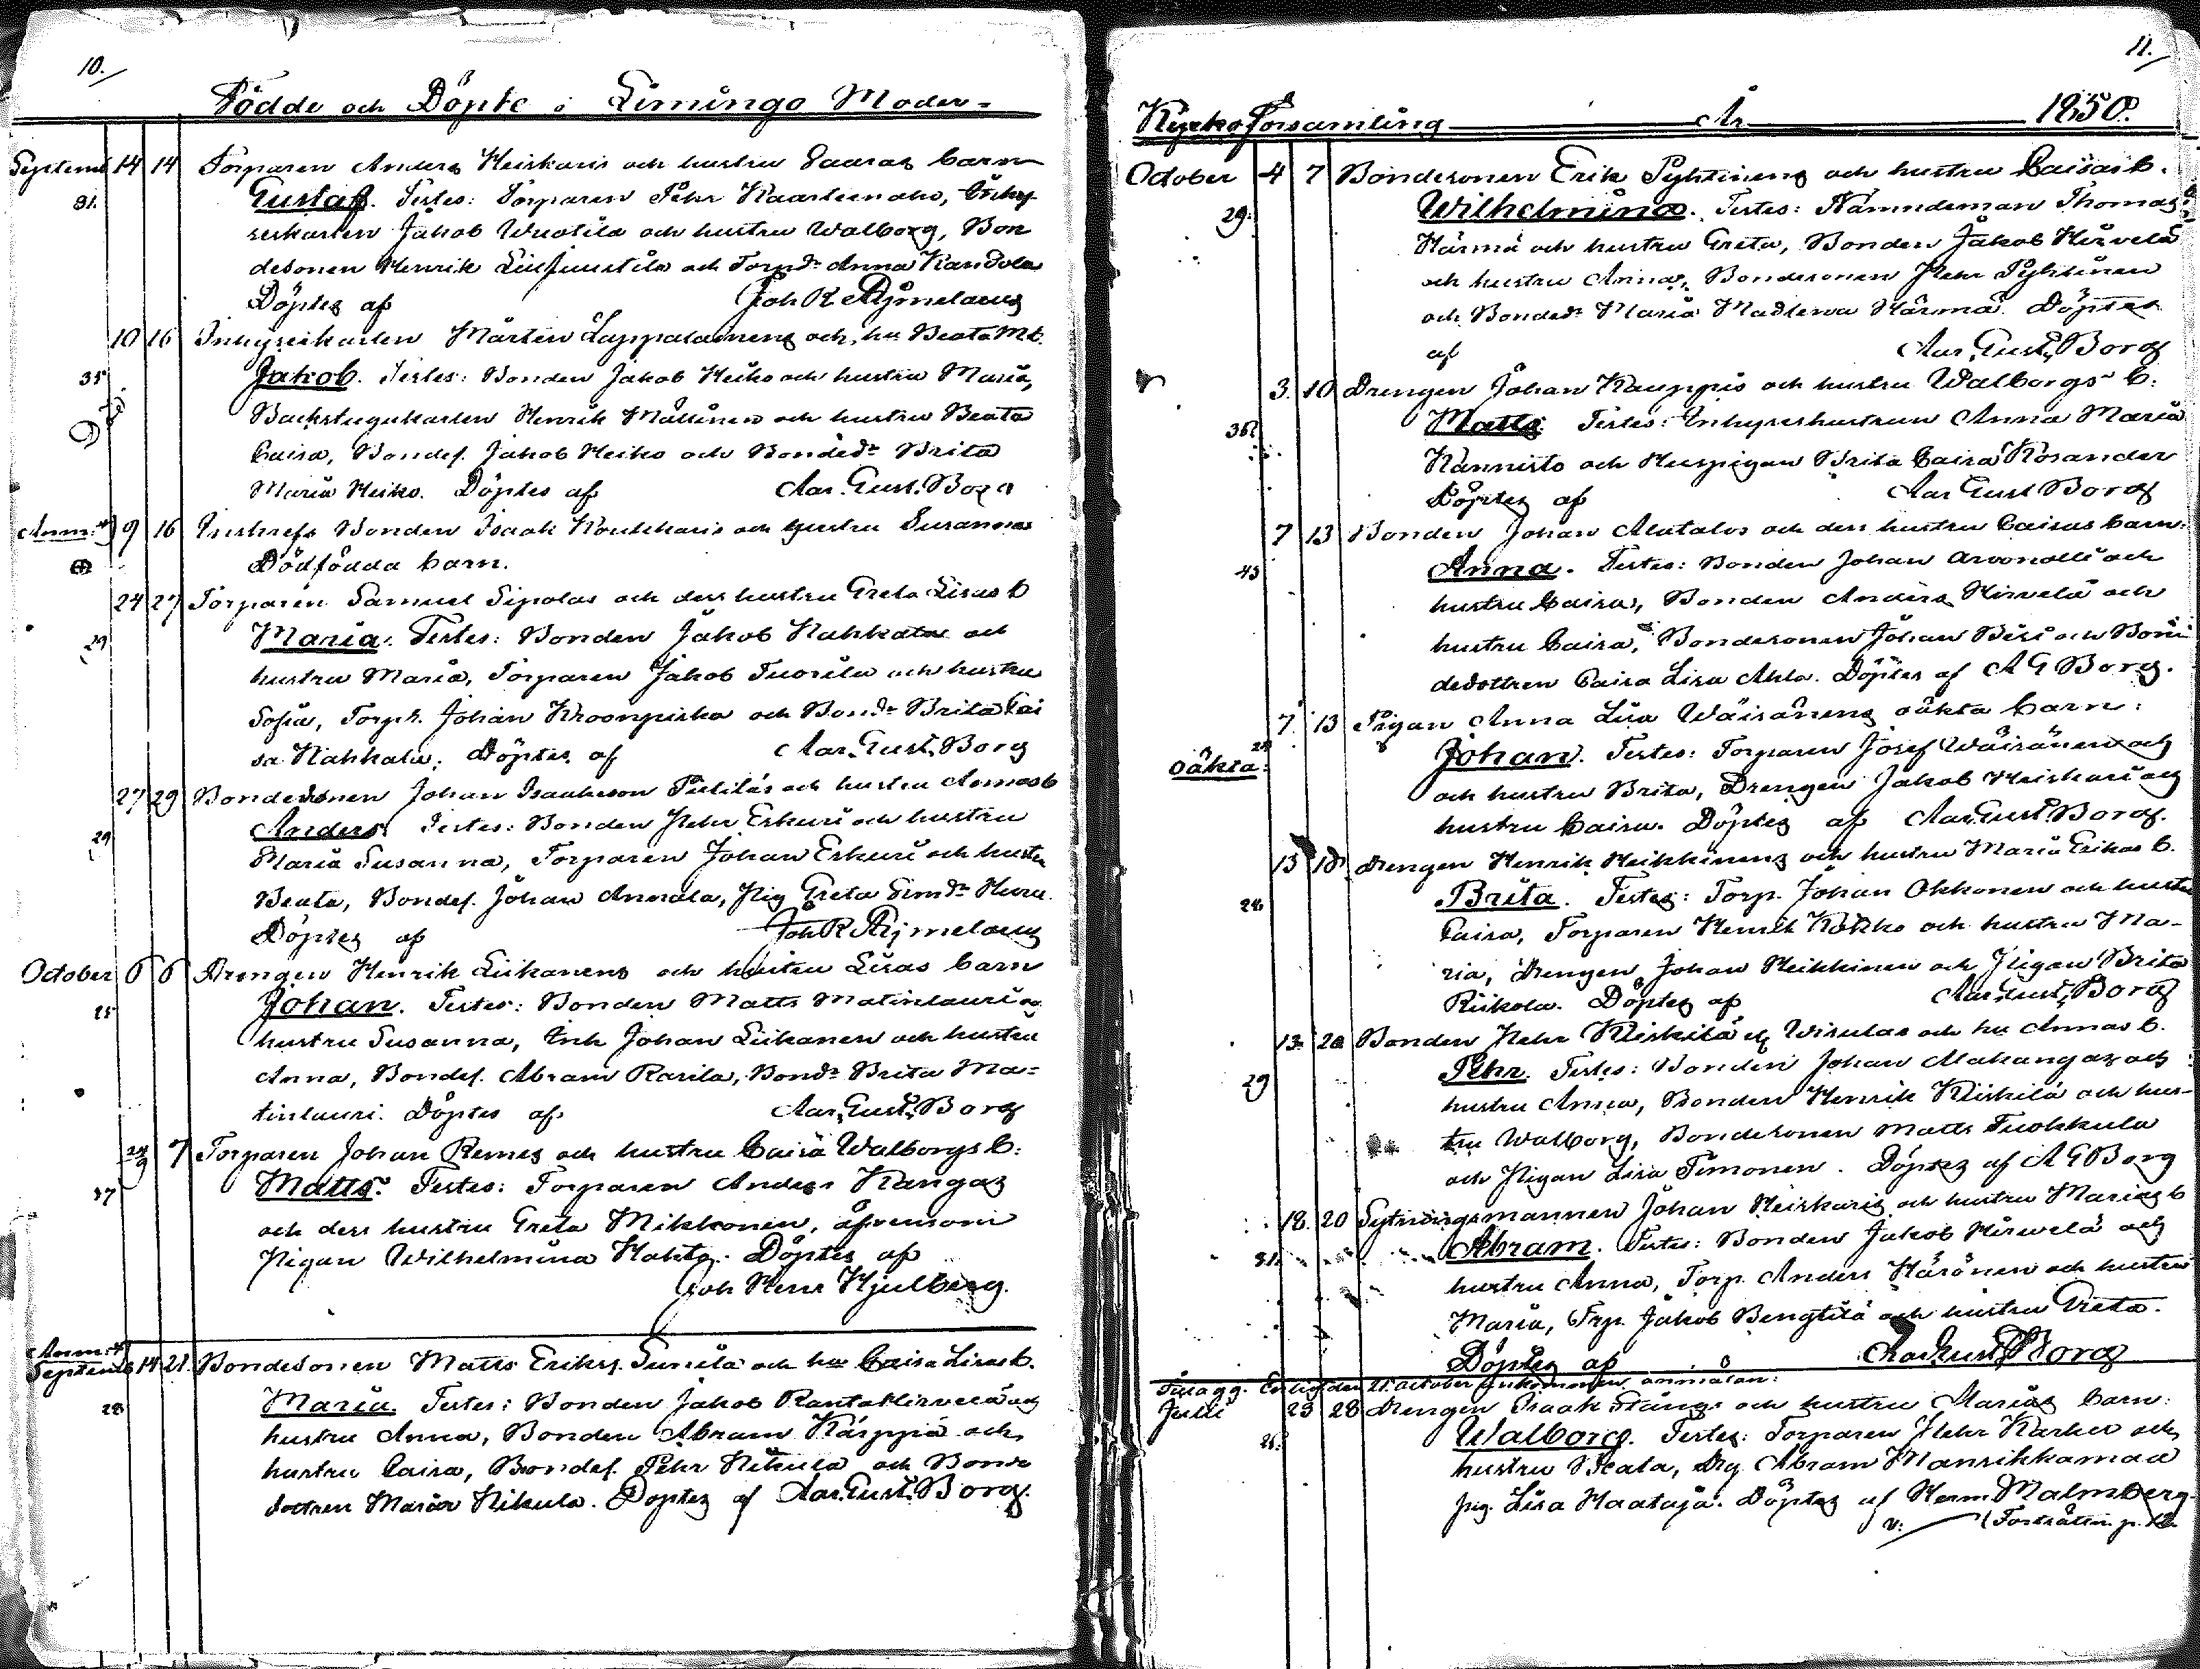 10.
Födde och Döpte i Limingo Moder=
Septemb. 14 14 Torparen Anders Heiskaris och hustru Saaras barn
31. Gustaf. Testes: Torparen Pehr Kaarleinaho, Inhy-
reskarlen Jakob Wuotila och hustru Walborg, Bon
desonen Henrik Liljuustila och Torpdr Anna Kandola
Döptes af Joh R Ajmelaeus
10 16 Inhyseskarlen Mårten Lappalainens och hu Beata M b.
35 Jakob. Testes: Bonden Jakob Heiko och hustru Maria,
Backstugukarlen Henrik Mållinen och hustru Beata
Caisa, Bondes. Jakob Heiko och Bondedr Brita
Maria Heiko. Döptes af Aar. Gust. Borg
Anm. 9 16 Bonden Isaak och hustru Susannas
Dödfödda barn.
24 27 Torparen Samuel Sipolas och dess hustru Greta Lisas b
29 Maria. Testes: Bonden Jakob Nahkala och
hustru Maria, Torparen Jakob Tuorila och hustru
Sofia, Torps. Johan Kroonpisko och Bondr Brita Cai
sa Nahkala. Döptes af Aar. Gust. Borg
27 29 Bondesonen Johan Isaaksson Pietiläs och hustru Annas b
29 Anders. Testes: Bonden Pehr Eskuri och hustru
Maria Susanna, Torparen Johan Eskuri och hustru
Beata, Bondes. Johan Annala, Pig Greta Simdr Huru.
Döptes af Joh R Ajmelaeus
October 6 6 Drengen Henrik Liikanens och hustru Lisas barn
25 Johan. Testes: Bonden Matts Matinlauri o.
hustru Susanna, Inh Johan Liikanen och hustru
Anna, Bondes. Abram Rasila, Bondr Brita Ma=
tinlauri. Döptes af Aar. Gust. Borg
29/9 7 Torparen Johan Remes och hustru Caisa Walborgs b:
37 Matts. Testes: Torparen Anders Kangas
och dess hustru Greta Mikkonen, äfvensom
Pigan Wilhelmina Hohto. Döptes af
Joh Henr Hjulberg.
Anm.
Septemb 14 21. Bondesonen Matts Eriks. Tunila och hu Caisa Lisas b.
28 Maria. Testes: Bonden Jakob Rantakirvelä och
hustru Anna, Bonden Abram Kärppä och
hustru Caisa, Bondes. Pehr Nikula och Bonde
dottren Maria Nikula. Döptes af Aar. Gust. Borg.
11.
Kyrko Församling År 1850.
October 4 7 Bondesonen Erik Pyhtinens och hustru Caisas b.
29. Wilhelmina. Testes: Nämndeman Thomas
Härmä och hustru Greta, Bonden Jakob Hirvelä
och hustru Anna, Bondesonen Pehr Pyhtinen
och Bondedr Maria Madlena Härmä. Döptes
af Aar. Gust. Borg
3. 10 Drengen Johan Kauppis och hustru Walborgs b:
36 Matts. Testes: Inhyseshustrun Anna Maria
Kannisto och Huspigan Brita Caisa Rosander
Döptes af Aar Gust Borg
7 13 Bonden Johan Alatalos och dess hustru Caisas barn:
43 Anna. Testes: Bonden Johan Arvonolli och
hustru Caisa, Bonden Anders Hirvelä och
hustru Caisa, Bondesonen Johan Bisi och Bon
dedottren Caisa Lisa Ahlo. Döptes af A G Borg.
7. 13 Pigan Anna Lisa Wäisänens oäkta barn:
oäkta: Johan. Testes: Torparen Josef Wäisänen och
och hustru Brita, Drengen Jakob Heiskari och
hustru Caisa. Döptes af Aar. Gust. Borg.
13 18 Drengen Henrik Heikkinens och hustru Maria Erikas b.
28 Brita. Testes: Torp. Johan Okkonen och hustru
Caisa, Torparen Henrik Kokko och hustru Ma-
ria, Drengen Johan Heikkinen och Pigan Brita
Riikola. Döptes af Aar. Gust. Borg
13. 20 Bonden Pehr Kiiskilä Wisulas och hu Annas b.
29 Pehr. Testes: Bonden Johan Alakangas och
hustru Anna, Bonden Henrik Kiiskilä och hus-
tru Walborg, Bondesonen Matts Tuohkula
och Pigan Lisa Timonen. Döptes af A G Borg
18. 20 Sytningsmannen Johan Heiskaris och hustru Marias b
31. Abram. Testes: Bonden Jakob Hirvelä och
hustru Anna, Torp. Anders Häsönen och hustru
Maria, Trp. Jakob Bengtilä och hustru Greta.
Döptes af Aar Gust Borg
Tillägg. Enligt den 21 October inkommen anmälan:
Juli 23 28 Drengen Isaak Stångs och hustru Marias barn:
Walborg. Testes: Torparen Pehr Karhu och
hustru Beata, Drg Abram Mansikkamaa
Pig. Lisa Haataja. Döptes af Herm Malmberg.
v: (Fortsättn. p. 12